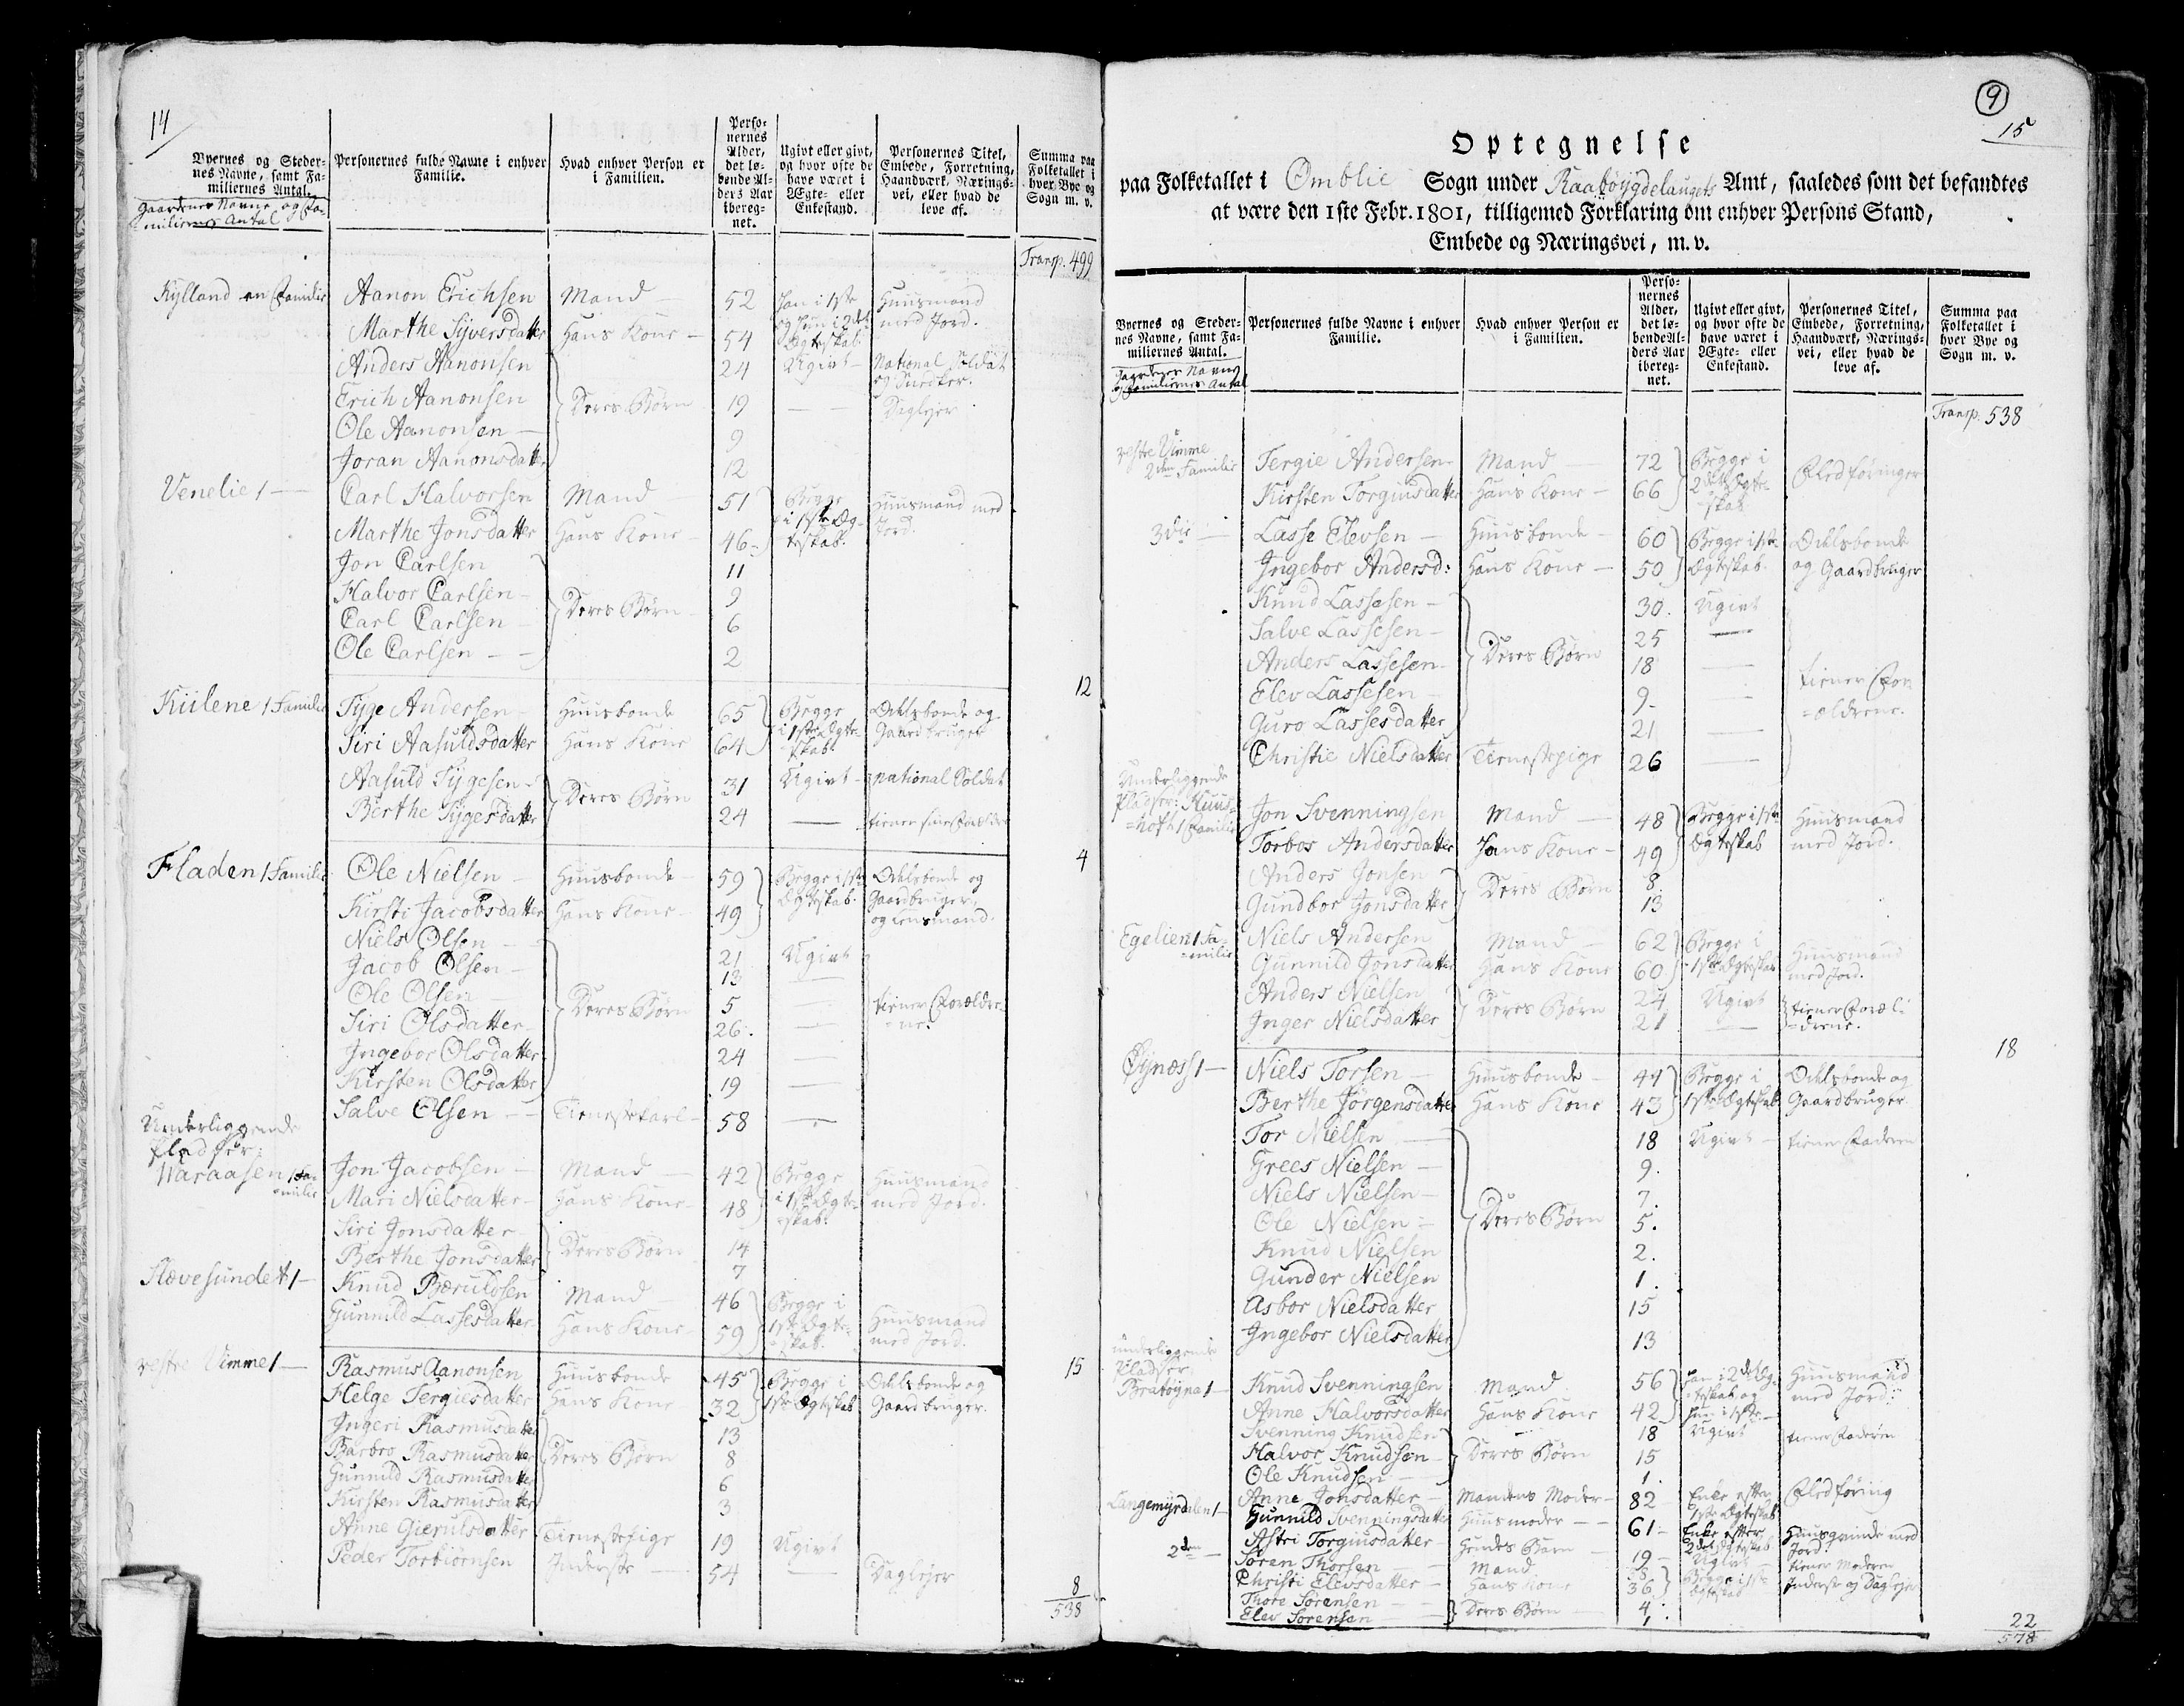 14
Byernes og Steder-
nes Navne, samt Fa-
miliernes Antal.
Gaardenes Navne og Fa-
miliernes Antal
Personernes fulde Navne i enhver
Familie.
Hvad enhver Person er
i Familien.
Perso-
nernes
Alder,
det lø-
bende Al-
ders Aar
ibereg-
net.
Ugivt eller givt,
og hvor ofte de
have været i
Ægte- eller
Enkestand.
Personernes Titel,
Embede, Forretning,
Haandværk, Nærings-
vei, eller hvad de
leve af.
Summa paa
Folketallet i
hver Bye og
Sogn m. v.
Transp. 499
Kylland en Familie Aanon Erichsen Mand 52 Han i 1ste og hun i 2det Ægteskab. Huusmand med Jord.
Marthe Syversdatter Hans Kone 54
Anders Aanonsen 24 Ugivt National Soldat og Snedker.
Erich Aanonsen Deres Børn 19 — Daglejer
Ole Aanonsen 9
Joran Aanonsdatter 12
Venelie 1 — Carl Halvorsen Mand 51 Begge i 1ste Æg-teskab. Huusmand med Jord.
Marthe Jonsdatter Hans Kone 46
Jon Carlsen 11
Halvor Carlsen Deres Børn 9
Carl Carlsen 6
Ole Carlsen 2
12
Kiilene 1 Familie Tyge Andersen Huusbonde 65 Begge i 1ste Ægte-skab. Odelsbonde og Gaardbruger
Siri Aasuldsdatter Hans Kone 64
Aasuld Tygesen Deres Børn 31 Ugivt National Soldat
Berthe Tygesdatter 24 — tiener sine Forældre
4
Fladen 1 Familie Ole Nielsen Huusbonde 59 Begge i 1ste Ægteskab. Odelsbonde og Gaardbruger,
Kirsti Jacobsdatter Hans Kone 49
Niels Olsen 21 Ugivt
Jacob Olsen 13 —
Ole Olsen Deres Børn 5 — tiener Forældre-ne.
Siri Olsdatter 26. —
Ingebor Olsdatter 24 —
Kirsten Olsdatter 19 —
Salve Olsen Tienestekarl 58 —
Underliggende
Pladser:
Waraasen 1 Fa-milie Jon Jacobsen Mand 42 Begge i 1ste Ægte-skab. Huusmand med Jord.
Mari Nielsdatter Hans Kone 48
Siri Jonsdatter Deres Børn 14
Berthe Jonsdatter 7
Slævesundet 1 — Knud Bæruldsen Mand 46 Begge i 1ste Ægte-skab. Huusmand med Jord.
Gunnild Lassesdatter Hans Kone 59
15
vestre Vimme 1 — Rasmus Aanonsen Huusbonde 45 Begge i 1ste Ægteskab Odelsbonde og Gaardbruger.
Helge Tergiesdatter Hans Kone 32
Ingeri Rasmusdatter 13
Barbro Rasmusdatter Deres Børn 8
Gunnild Rasmusdatter 6
Kirsten Rasmusdatter 3
Anne Gierulsdatter Tienestepige 19 Ugivt
Peder Torbiørnsen Inderste 54 — Daglejer
8
538
9
15
Optegnelse
paa Folketallet i Omblie Sogn under Raabøygdelaugets Amt, saaledes som det befandtes
at være den 1ste Febr. 1801, tilligemed Forklaring om enhver Persons Stand,
Embede og Næringsvei, m. v.
Byernes og Steder-
nes Navne, samt Fa-
miliernes Antal.
Gaardenes Navne
og Familiernes Antal
Personernes fulde Navne i enhver
Familie.
Hvad enhver Person er
i Familien.
Perso-
nernes
Alder,
det lø-
bende Al-
ders Aar
ibereg-
net.
Ugivt eller givt,
og hvor ofte de
have været i
Ægte- eller
Enkestand.
Personernes Titel,
Embede, Forretning,
Haandværk, Nærings-
vei, eller hvad de
leve af.
Summa paa
Folketallet i
hver Bye og
Sogn m. v.
Transp. 538
vestre Vimme 2den Familie Tergie Andersen Mand 72 Begge i 2det Ægte-skab Fledføringer
Kirsten Torgiusdatter Hans Kone 66
3die — Lasse Elevsen Huusbonde 60 Begge i 1ste Ægteskab. Odelsbonde og Gaardbruger
Ingebor Andersd: Hans Kone 50
Knud Lassesen 30. Ugivt
Salve Lassesen 25 —
Anders Lassesen Deres Børn 18 — tiener For-ældrene.
Elev Lassesen 9. —
Guro Lassesdatter 21 —
Christie Nielsdatter Tienestepige 26 —
Underliggende
Pladser: Huus-
Jon Svenningsen Mand 48 Begge i 1ste Ægteskab Huusmand med Jord.
Torbor Andersdatter Hans Kone 49
Anders Jonsen Deres Børn 8
Gundbor Jonsdatter 13
Egelien 1 Fa-milie Niels Andersen Mand 62 Begge i 1ste Ægteskab Huusmand med Jord.
Gunnild Jonsdatter Hans Kone 60
Anders Nielsen Deres Børn 24 Ugivt tiener Foræl-drene.
Inger Nielsdatter 21 —
18
Øynæss 1 — Niels Torsen Huusbonde 44 Begge i 1ste Ægteskab Odelsbonde og Gaardbruger
Berthe Jørgensdatter Hans Kone 43
Tor Nielsen 18 Ugivt tiener Faderen
Grees Nielsen 9.
Niels Nielsen 7.
Ole Nielsen Deres Børn 5.
Knud Nielsen 2.
Gunder Nielsen 1.
Asbor Nielsdatter 15
Ingebor Nielsdatter 13
underliggende
Pladser.
Bratøyna 1 — Knud Svenningsen Mand 56 Han i 2det Æg-teskab og hun i 1ste Huusmand med Jord.
Anne Halvorsdatter Hans Kone 42
Svenning Knudsen 18 Ugivt tiener Faderen
Halvor Knudsen Deres Børn 15
Ole Knudsen 1.
Anne Jonsdatter Mandens Moder 82 Enke efter 1ste Ægteskab Fledføring
Langemyrdalen 1 — Gunnild Svenningsdatter Huusmoder 61 Enke efter 2det Ægteskab Huusqvinde med Jord.
Astri Torgiusdatter Hendes Barn 19 Ugivt tiener Moderen
2den — Søren Thorsen Mand Begge i 1ste Ægteskab Inderste og Daglejer
Christi Elevsdatter Hans Kone 36
Thore Sørensen Deres Børn 4
Elev Sørensen 1.
22
578